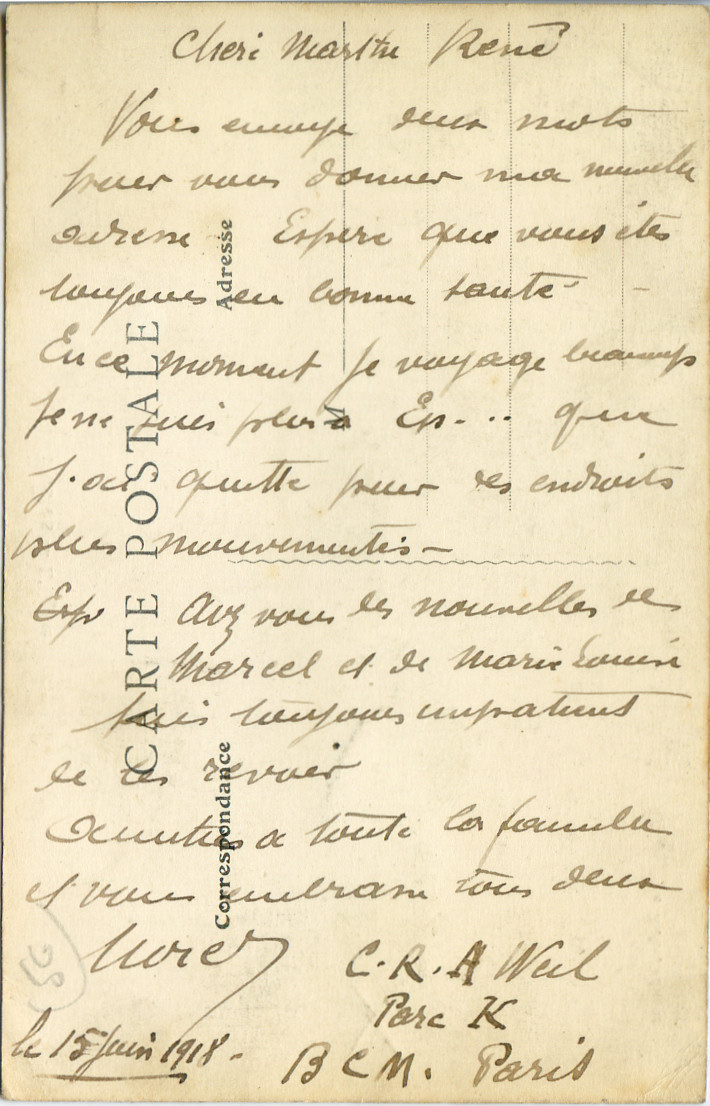 Cheri Marthe René
Vous envoye deux mots
pour vous donner ma nouvelle
adresse Espere que vous êtes
toujours en bonne santé -
En ce moment je voyage beaucoup
Je ne suis plus a Ep... que
J'ai quitté pour des endroits
plus mouvementés -
Esp Avez vous des nouvelles de
Marcel et de Marie Louise
Suis toujours impatient
de les revoir
Amities a toute la famille
et vous embrasse tous deux
C. R. A Weil
Parc K
le 15 Juin 1918 -
B C M. Paris
CARTE POSTALE
Correspondance
Adresse
M